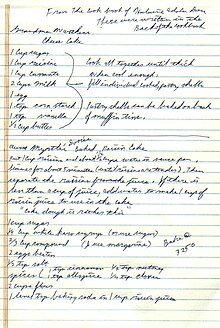 From the Cook book of
these were written in the
Back of the cookbook
Grandma
Cheese Cake
1 cup sugar
1 cup raisins
1 cup currants
2 cups milk
2 egg
1 tsp corn starch
1 tsp vanilla
½ cup butter
Cook all together until thick
when cool enough
fill individual cooked pastry shells
Pastry shells can be baked on back
of muffin tins.
Aunt Boiled Raisin Cake
1 cup raisins and about 2 cups water in sauce pan
simmer for about 5 minutes (until raisins are tender). Then
separate the raisins from the juice. If there is
less than 1 cup of juice, add water to make 1 cup of
raisin juice to use in the cake
"cake dough is rather thin"
1 cup sugar
¼ cup white karo syrup (or use sugar)
2/3 cup (use margarine)
Bake @
350
2 eggs beaten
½ tsp salt
spices 1 tsp cinnamon ½ tsp nutmeg
1 tsp allspice ½ tsp cloves
2 cups flour
1 level tsp baking soda in 1 cup raisin juice